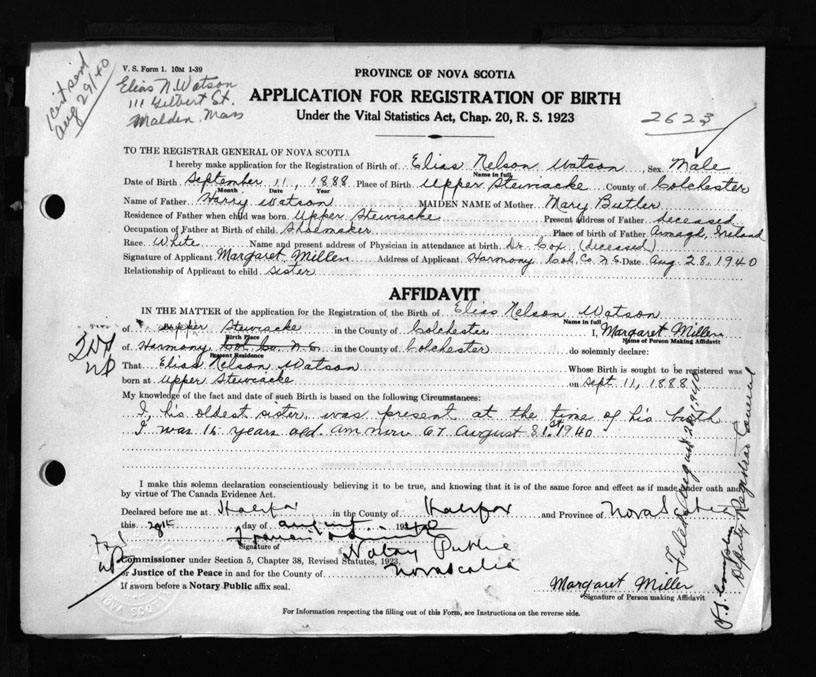 V. S. Form 1. 10M 1-39
Elias N. Watson
111 Gilbert St.
Malden, Mass
Aug 29/40
PROVINCE OF NOVA SCOTIA
APPLICATION FOR REGISTRATION OF BIRTH
Under the Vital Statistics Act, Chap. 20, R. S. 1923
2623
TO THE REGISTRAR GENERAL OF NOVA SCOTIA
I hereby make application for the Registration of Birth of Elias Nelson Watson, Sex Male
Name in full
Date of Birth September 11, 1888 Place of Birth Upper Stewiacke County of Colchester
Month Date Year
Name of Father Harry Watson MAIDEN NAME of Mother Mary Butler
Residence of Father when child was born Upper Stewiacke Present address of Father deceased
Occupation of Father at Birth of child Shoemaker Place of birth of Father Armagh, Ireland
Race White Name and present address of Physician in attendance at birth Dr. Cox (deceased)
Signature of Applicant Margaret Millen Address of Applicant Harmony Col. Co. N.S. Date Aug. 28, 1940
Relationship of Applicant to child Sister
AFFIDAVIT
IN THE MATTER of the application for the Registration of the Birth of Elias Nelson Watson
Name in full
of Upper Stewiacke in the County of Colchester I, Margaret Millen
Birth Place Name of Person Making Affidavit
of Harmony Col. Co. N.S. in the County of Colchester do solemnly declare:
Present Residence
That Elias Nelson Watson Whose Birth is sought to be registered was
born at Upper Stewiacke on Sept. 11, 1888
My knowledge of the fact and date of such Birth is based on the following Circumstances:
I, his oldest sister, was present at the time of his birth
I was 15 years old. Am now 67 August 31st 1940
I make this solemn declaration conscientiously believing it to be true, and knowing that it is of the same force and effect as if made under oath and
by virtue of The Canada Evidence Act.
Declared before me at Halifax in the County of Halifax and Province of Nova Scotia
this 28th day of August 1940
Signature of
Notary Public
Commissioner under Section 5, Chapter 38, Revised Statutes, 1923
Nova Scotia
or Justice of the Peace in and for the County of
If sworn before a Notary Public affix seal.
Margaret Miller
Signature of Person making Affidavit
For Information respecting the filling out of this Form, see Instructions on the reverse side.
Filed August 28, 1940
Deputy Registrar General